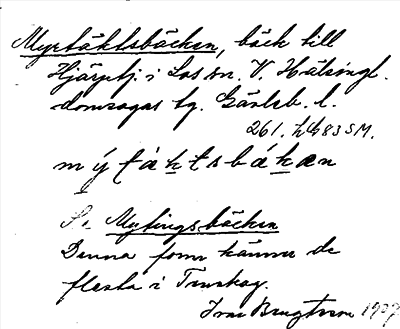 Myrtäktsbäcken, bäck till
Hjärptj. i Los sn. V. Hälsingl.
domsagas tg. Gävleb. l.
261. h U83 SM.
m ý t ä k t s b á k æ n
Se Mytingsbäcken
Denna form känna de
flesta i Tenskog.
Ivar Bengtsson 1929